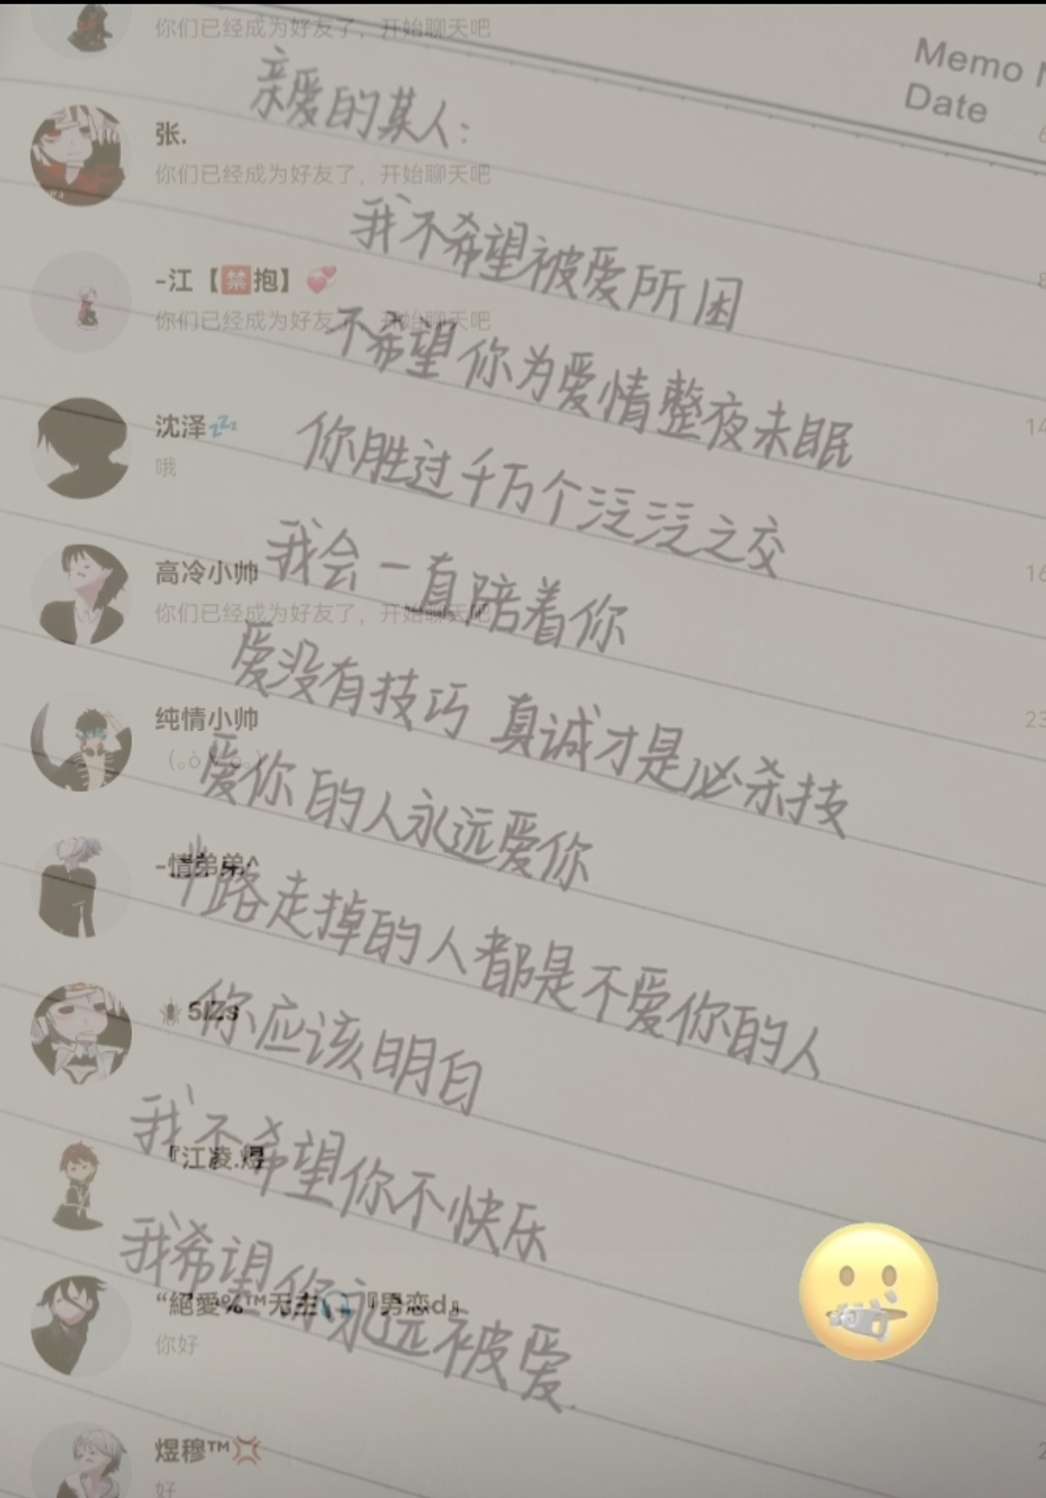 你们已经成为好友了，开始聊天吧
Memo
Date
亲爱的某人：
张.
你们已经成为好友了，开始聊天吧
我不希望被爱所困
-江【禁抱】💞
你们已经成为好友了，开始聊天吧
不希望你为爱情整夜未眠
沈泽💤
哦
14
你胜过千万个泛泛之交
我会一直陪着你
高冷小帅
16
你们已经成为好友了，开始聊天吧
爱没有技巧 真诚才是必杀技
纯情小帅
23
爱你的人永远爱你
-情弟弟^
半路走掉的人都是不爱你的人
5IZs
你应该明白
我不希望你不快乐
『江凌.煜
我希望你永远被爱.
“絕愛%™无主🎧『男恋d』
你好
煜穆™💢
好